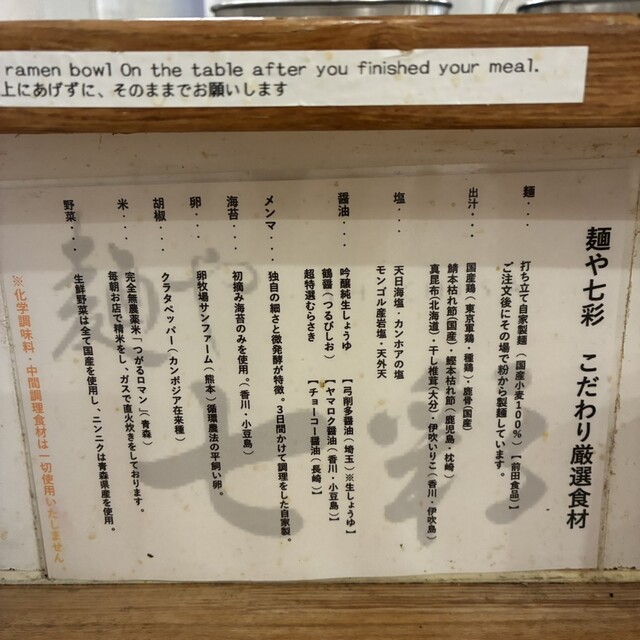 ramen bowl On the table after you finished your meal.
上にあげずに、そのままでお願いします
麺や七彩 こだわり厳選食材
麺・・・ 打ち立て自家製麺(国産小麦100%)【前田食品】
ご注文後にその場で粉から製麺しています。
出汁・・・ 国産鶏(東京軍鶏、種鶏)・鹿骨(国産)
鯖本枯れ節(国産)・鰹本枯れ節(鹿児島・枕崎)
真昆布(北海道)・干し椎茸(大分)・伊吹いりこ(香川・伊吹島)
塩・・・ 天日海塩・カンホアの塩
モンゴル産岩塩・天外天
醤油・・・ 吟醸純生しょうゆ 【弓削多醤油(埼玉)※生しょうゆ】
鶴醤(つるびしお) 【ヤマロク醤油(香川・小豆島)】
超特選むらさき 【チョーコー醤油(長崎)】
メンマ・・・ 独自の細さと微発酵が特徴。3日間かけて調理をした自家製。
海苔・・・ 初摘み海苔のみを使用。(香川・小豆島)
卵・・・ 卵牧場サンファーム(熊本)循環農法の平飼い卵。
胡椒・・・ クラタペッパー(カンボジア在来種)
米・・・ 完全無農薬米「つがるロマン」(青森)
毎朝お店で精米をし、ガスで直火炊きをしております。
野菜・・・ 生鮮野菜は全て国産を使用し、ニンニクは青森県産を使用。
※化学調味料・中間調理食材は一切使用いたしません
麺や
七彩